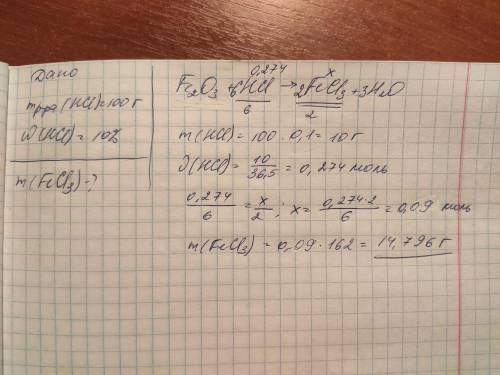 Дано
m р-ра (HCl) = 100 г
ω(HCl) = 10%
m(FeCl₃) - ?
0,274 x
Fe₂O₃ + 6HCl → 2FeCl₃ + 3H₂O
6 2
m(HCl) = 100 · 0,1 = 10 г
∂(HCl) = 10/36,5 = 0,274 моль
0,274/6 = x/2 ; x = 0,274·2/6 = 0,09 моль
m(FeCl₃) = 0,09 · 162 = 14,796 г